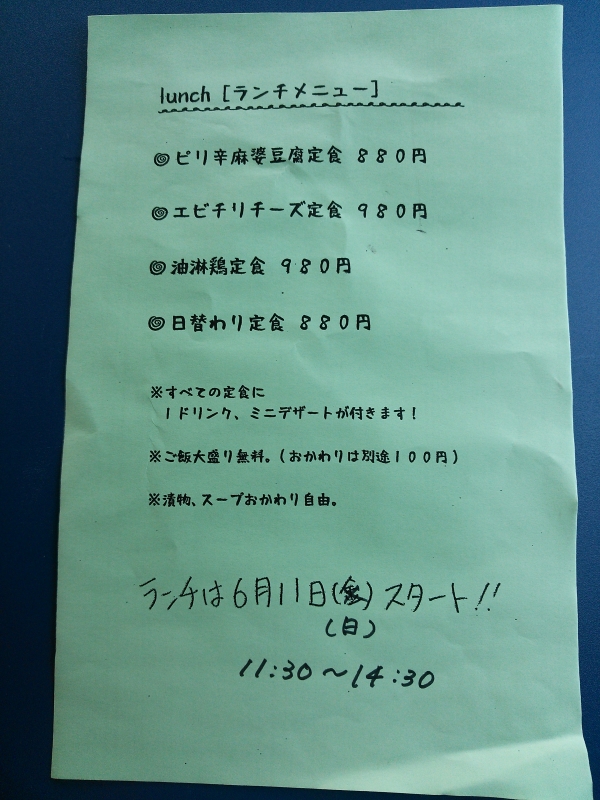 lunch [ランチメニュー]
◎ピリ辛麻婆豆腐定食 880円
◎エビチリチーズ定食 980円
◎油淋鶏定食 980円
◎日替わり定食 880円
※すべての定食に
1ドリンク、ミニデザートが付きます!
※ご飯大盛り無料。(おかわりは別途100円)
※漬物、スープおかわり自由。
ランチは6月11日(金)スタート!!
(日)
11:30〜14:30